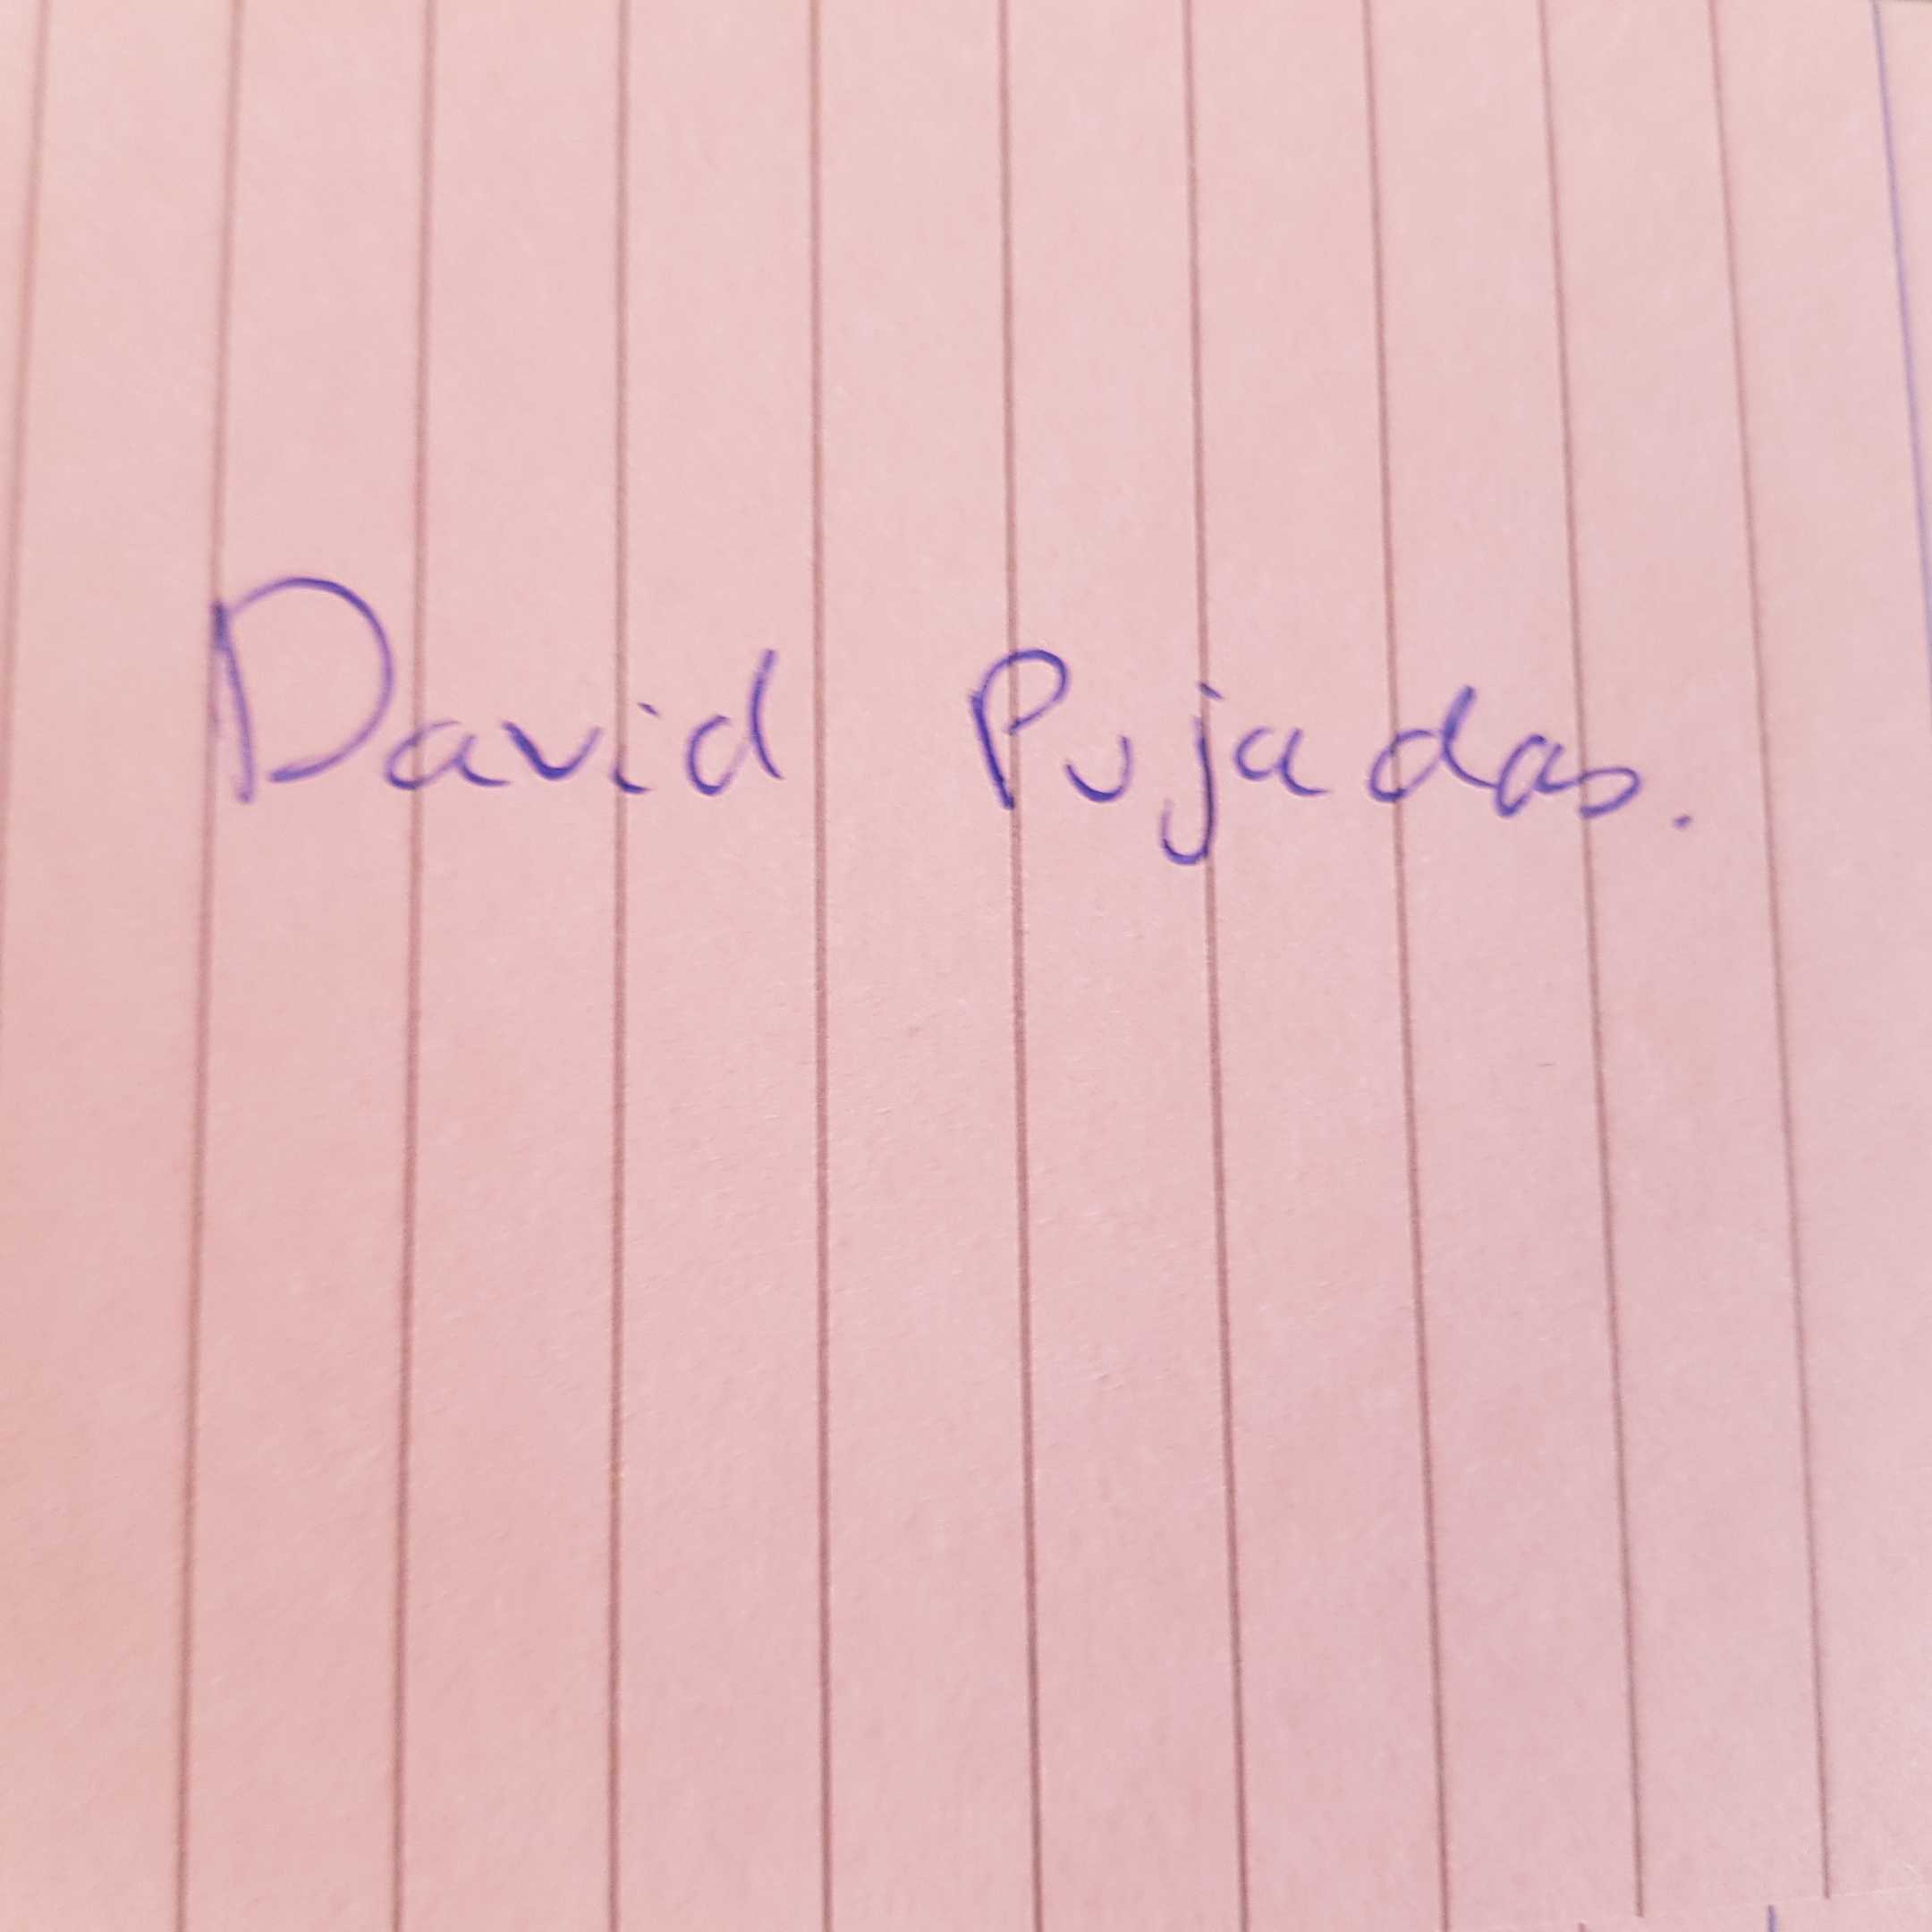 David Pujadas.